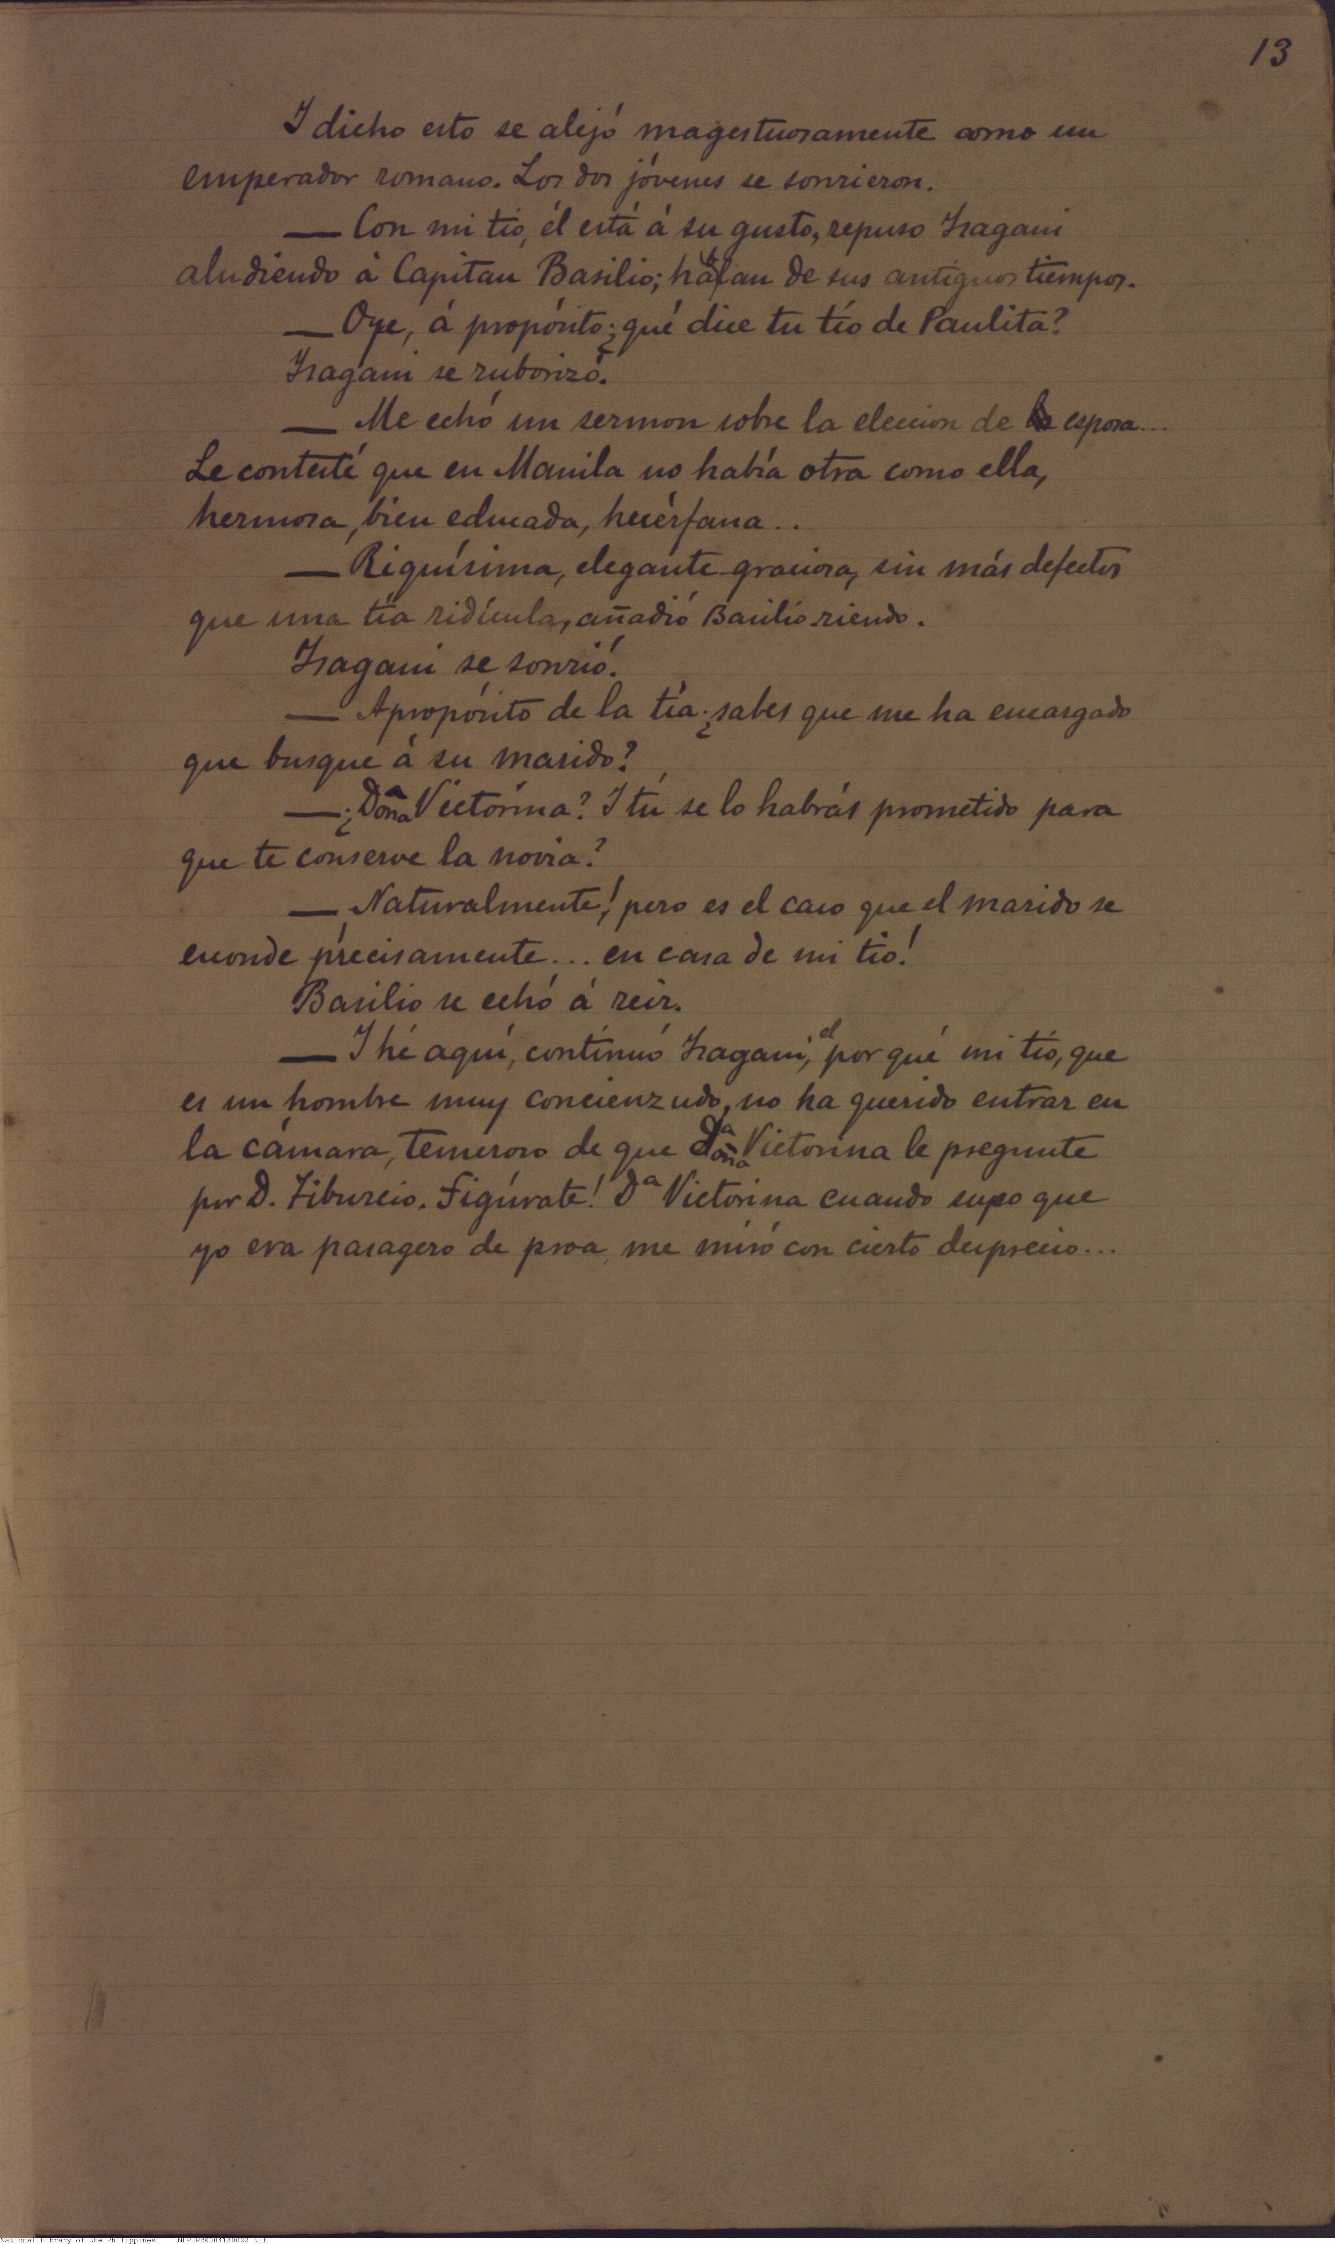 13
I dicho esto se alejó magestuosamente como un
emperador romano. Los dos jóvenes se sonrieron.
— Con mi tio, él está á su gusto, repuso Isagani
aludiendo á Capitan Basilio; hablan de sus antiguos tiempos.
— Oye, á propósito ¿qué dice tu tío de Paulita?
Isagani se ruborizó.
— Me echó un sermon sobre la eleccion de esposa...
Le contesté que en Manila no había otra como ella,
hermosa, bien educada, huérfana..
— Riquísima, elegante graciosa, sin más defectos
que una tía ridícula, añadió Basilio riendo.
Isagani se sonrió.
— Apropósito de la tía ¿sabes que me ha encargado
que busque á su marido?
— ¿Doña Victorina? I tú se lo habrás prometido para
que te conserve la novia?
— Naturalmente! pero es el caso que el marido se
esconde precisamente... en casa de mi tio!
Basilio se echó á reir.
— I hé aquí, continuó Isagani, el por qué mi tío, que
es un hombre muy concienzudo, no ha querido entrar en
la cámara, temeroso de que Doña Victorina le pregunte
por D. Tiburcio. Figúrate! Dª Victorina cuando supo que
yo era pasagero de proa, me miró con cierto desprecio...